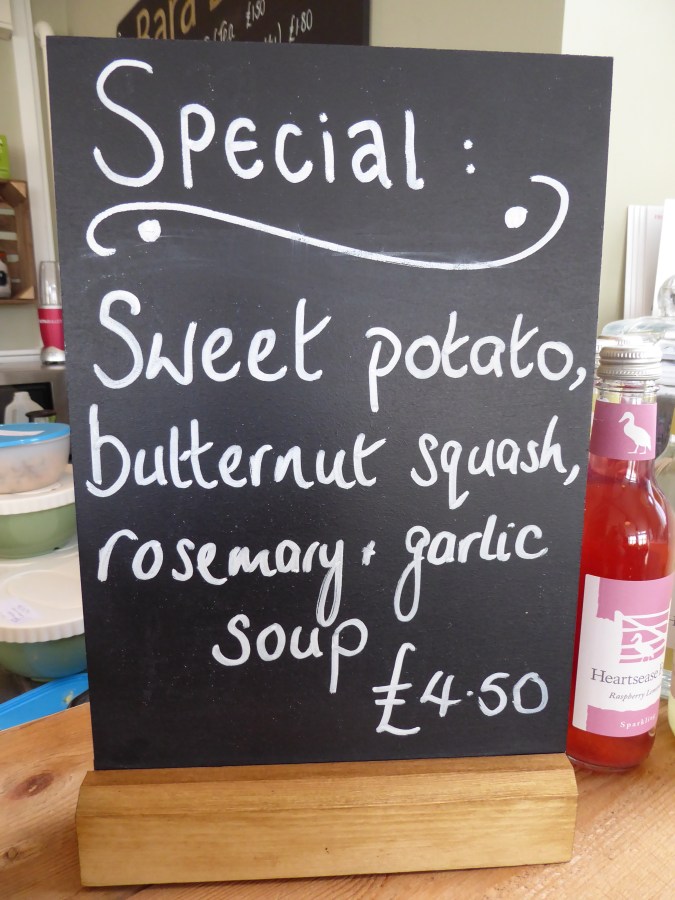 Bara
£1.50
£1.80
Special :
Sweet potato,
butternut squash,
rosemary + garlic
soup
£4.50
Heartsease
Raspberry